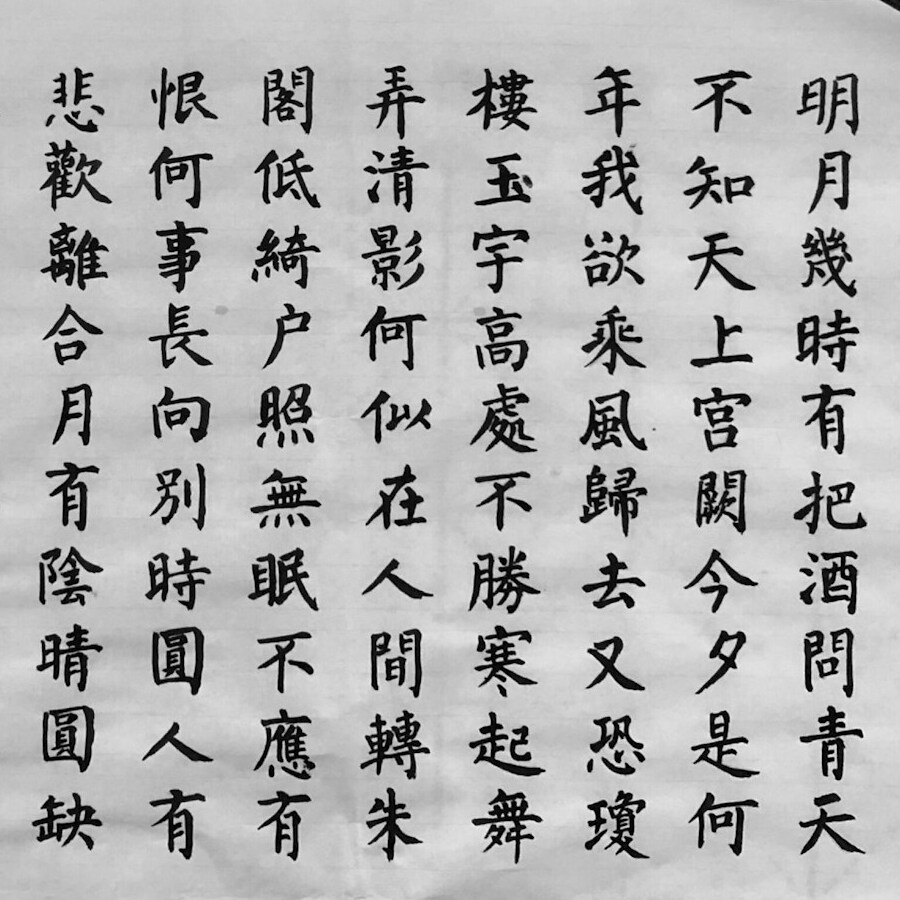 明月幾時有把酒問青天
不知天上宫闕今夕是何
年我欲乘風歸去又恐瓊
樓玉宇高處不勝寒起舞
弄清影何似在人間轉朱
閣低綺户照無眠不應有
恨何事長向别時圓人有
悲歡離合月有陰晴圓缺